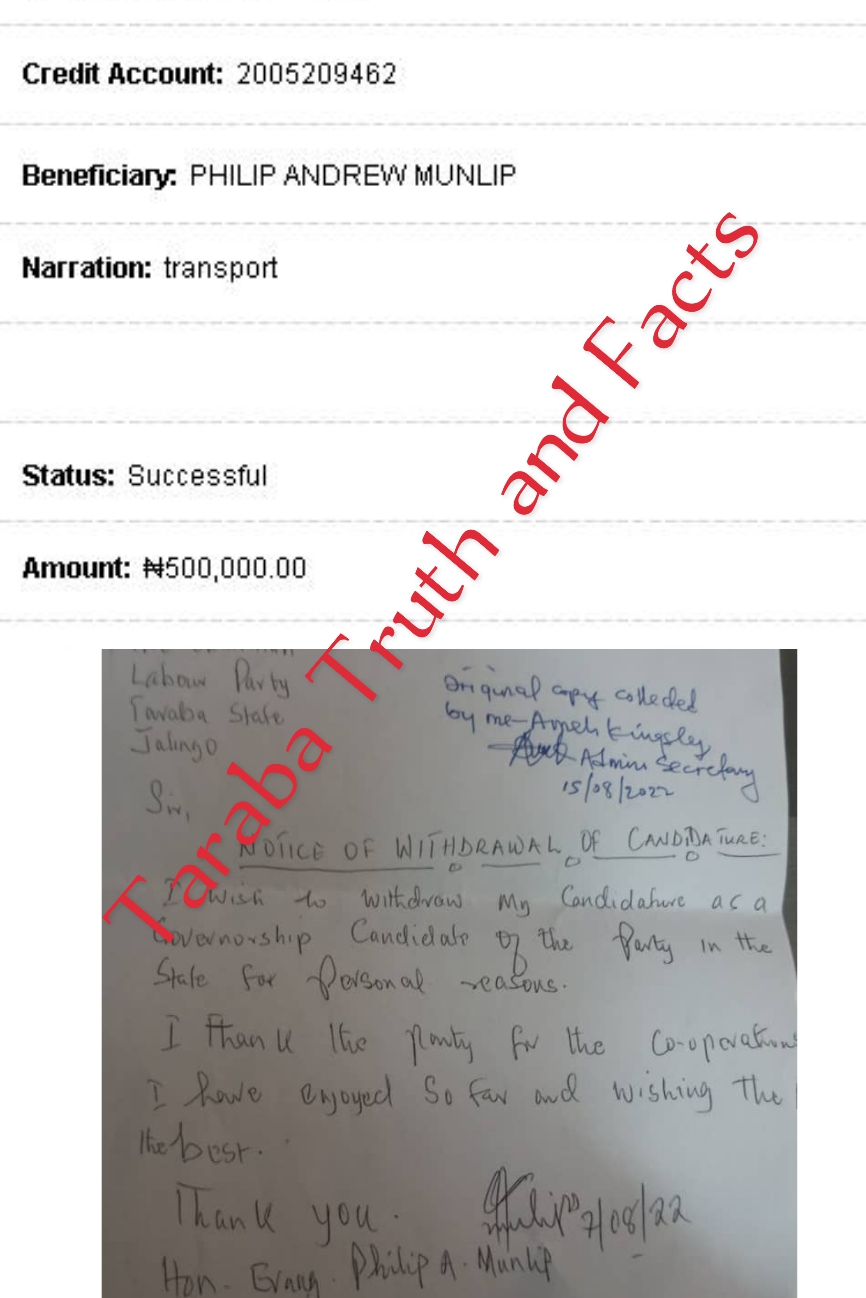 Credit Account: 2005209462
Beneficiary: PHILIP ANDREW MUNLIP
Narration: transport
Status: Successful
Amount: ₦500,000.00
Taraba Truth and Facts
Labour Party
Taraba State
Jalingo
Original copy collected
by me- Kingsley
Admin Secretary
15/08/2022
Sir,
NOTICE OF WITHDRAWAL OF CANDIDATURE:
I wish to withdraw my Candidature as a
Governorship Candidate of the Party in the
State for personal reasons.
I thank the party for the Co-operations
I have enjoyed So far and wishing the
the best.
Thank you.
7/08/22
Hon. Evang. Philip A. Munlip